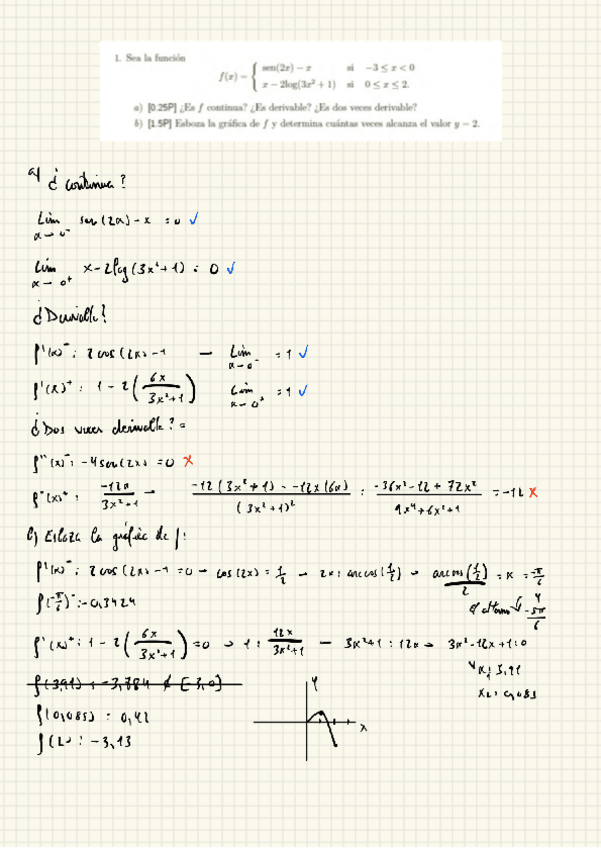 1. Sea la función
f(x) = { sen(2x) − x si −3 ≤ x < 0
x − 2log(3x² + 1) si 0 ≤ x ≤ 2.
a) [0.25P] ¿Es f continua? ¿Es derivable? ¿Es dos veces derivable?
b) [1.5P] Esboza la gráfica de f y determina cuántas veces alcanza el valor y = 2.
a) ¿continua?
Lim x→0⁻ sen(2x) − x = 0 ✓
Lim x→0⁺ x − 2log(3x² + 1) = 0 ✓
¿Derivable?
f'(x)⁻: 2cos(2x) − 1 → Lim x→0⁻ = 1 ✓
f'(x)⁺: 1 − 2(6x/(3x²+1)) Lim x→0⁺ = 1 ✓
¿Dos veces derivable? =
f''(x)⁻: −4sen(2x) = 0 X
f''(x)⁺: −12x/(3x²+1) → (−12(3x²+1) − −12x(6x))/(3x²+1)² : (−36x²−12+72x²)/(9x⁴+6x²+1) = −12 X
b) Esboza la gráfica de f:
f'(x)⁻: 2cos(2x) − 1 = 0 → cos(2x) = 1/2 → 2x: arccos(1/2) → arccos(1/2)/2 = x = −π/6
f(−π/6)⁻: −0,3424 y
el último ↳ −5π/6
f'(x)⁺: 1 − 2(6x/(3x²+1)) = 0 → 1: 12x/(3x²+1) → 3x²+1: 12x → 3x²−12x+1: 0
x₁: 3,91
f(3,91): −3,784 ∉ [−3,0]
x₂: 0,085
f(0,085): 0,42
f(2): −3,13
y
x